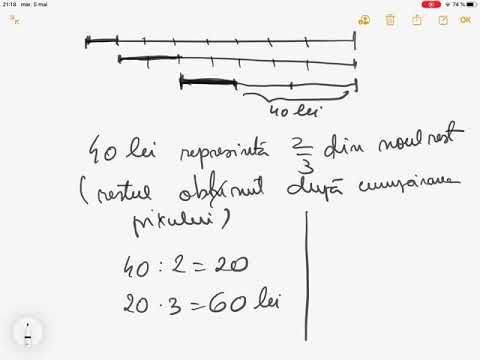 21:18 mar. 5 mai
74 %
OK
40 lei
40 lei represintă 2/3 din noul rest
(restul obținut după cumpărarea
pixului)
40 : 2 = 20
20 · 3 = 60 lei